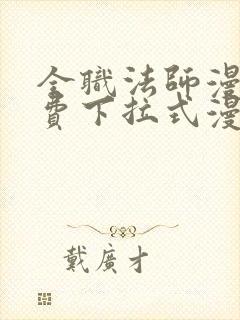 全職法師漫
費下拉式漫
戴廣才